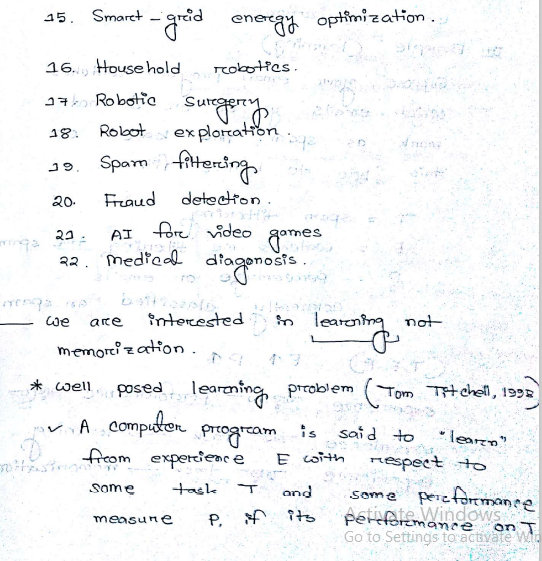 15. Smart-grid energy optimization.
16. Household robotics.
17. Robotic Surgery
18. Robot exploration.
19. Spam filtering
20. Fraud detection.
21. AI for video games
22. Medical diagonosis.
we are interested in learning not
memorization.
* well posed learning problem (Tom Mitchell, 1998)
✓ A computer program is said to "learn"
from experience E with respect to
some task T and some performance
measure P, if its performance on T
Activate Windows
Go to Settings to activate Win